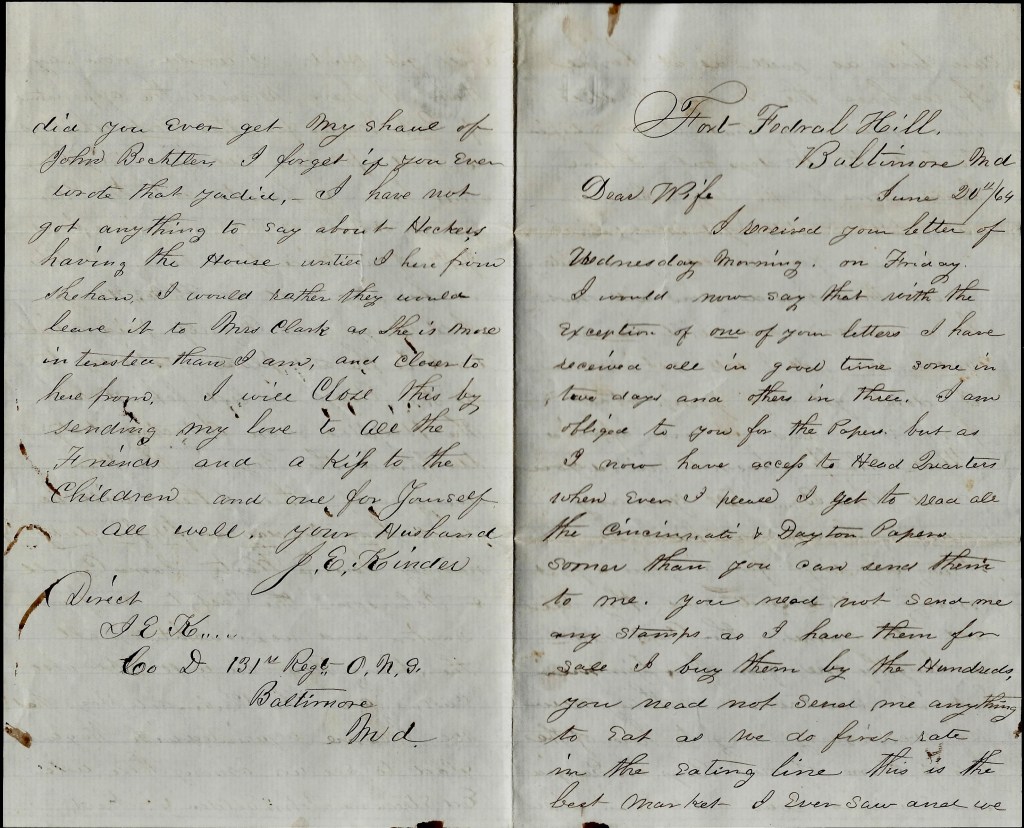 Fort Fedral Hill.
Baltimore Md
Dear Wife June 20th/64
I received your letter of
Wednesday Morning. on Friday.
I would now say that with the
Exception of one of your letters I have
received all in good time some in
two days and others in three. I am
obliged to you for the Papers but as
I now have access to Head Quarters
when Ever I please I get to read all
the Cincinnati & Dayton Papers
sooner than you can send them
to me. you need not send me
any stamps as I have them for
sale I buy them by the Hundreds,
you need not send me anything
to Eat as we do first rate
in the Eating line this is the
best Market I Ever saw and we
did you Ever get My shaul of
John Bechtler I forget if you Ever
wrote that you did, - I have not
got anything to say about Heckers
having the House untill I here from
Shehan. I would rather they would
leave it to Mrs Clark as She is More
interested than I am, and closer to
here from. I will Close this by
sending my love to all the
Friends and a Kiss to the
Children and one for Yourself
all well. your Husband
J. E. Kinder
Direct
J E K....
Co D 131st Regt. O. N. G.
Baltimore
Md.